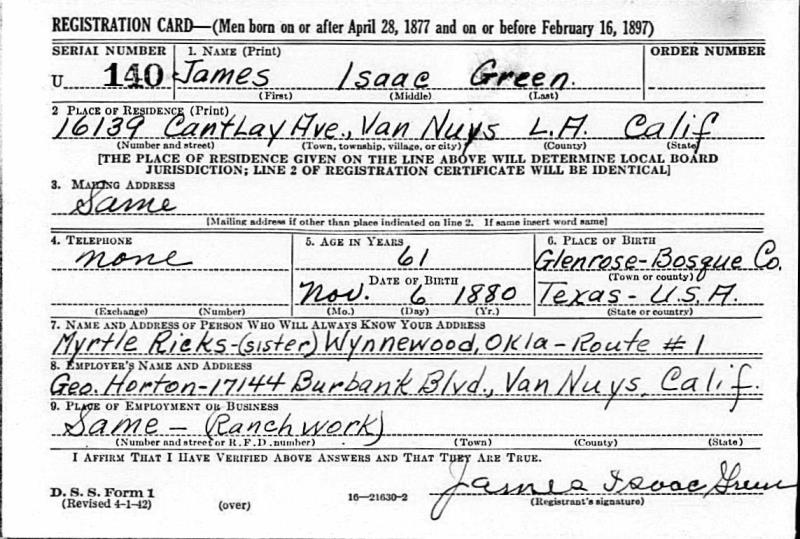 REGISTRATION CARD—(Men born on or after April 28, 1877 and on or before February 16, 1897)
SERIAL NUMBER 1. NAME (Print) ORDER NUMBER
U 140 James Isaac Green.
(First) (Middle) (Last)
2 PLACE OF RESIDENCE (Print)
16139 Cantlay Ave., Van Nuys L.A. Calif
(Number and street) (Town, township, village, or city) (County) (State)
[THE PLACE OF RESIDENCE GIVEN ON THE LINE ABOVE WILL DETERMINE LOCAL BOARD
JURISDICTION; LINE 2 OF REGISTRATION CERTIFICATE WILL BE IDENTICAL]
3. MAILING ADDRESS
Same
[Mailing address if other than place indicated on line 2. If same insert word same]
4. TELEPHONE 5. AGE IN YEARS 6. PLACE OF BIRTH
none 61 Glenrose-Bosque Co.
DATE OF BIRTH (Town or county)
Nov. 6 1880 Texas- U.S.A.
(Exchange) (Number) (Mo.) (Day) (Yr.) (State or country)
7. NAME AND ADDRESS OF PERSON WHO WILL ALWAYS KNOW YOUR ADDRESS
Myrtle Ricks-(sister) Wynnewood, Okla-Route #1
8. EMPLOYER'S NAME AND ADDRESS
Geo. Horton-17144 Burbank Blvd., Van Nuys, Calif.
9. PLACE OF EMPLOYMENT OR BUSINESS
Same - (Ranchwork)
(Number and street or R. F. D. number) (Town) (County) (State)
I AFFIRM THAT I HAVE VERIFIED ABOVE ANSWERS AND THAT THEY ARE TRUE.
James Isaac Green
D. S. S. Form 1
(Revised 4-1-42) (over) 16—21630-2 (Registrant's signature)